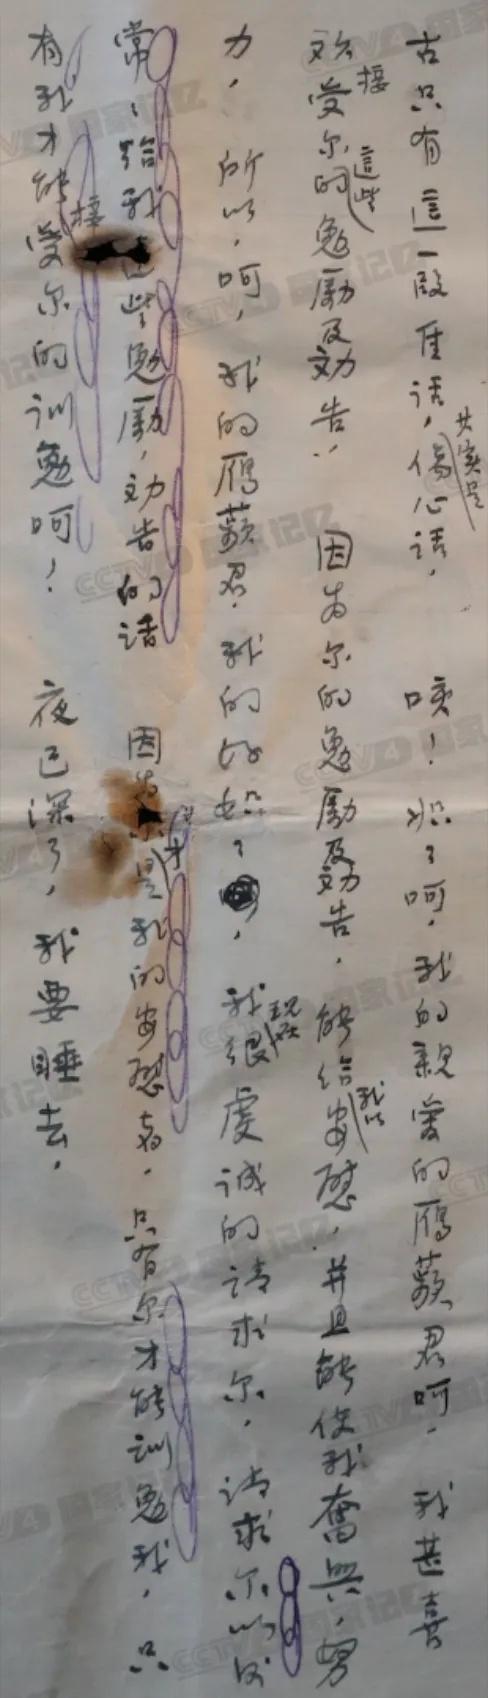 古只有這一段 话，傷心话，其实是 唉！姐了呵，我的親爱的鴈蘋君呵，我甚喜
欢接受尔的這些勉励及劝告， 因为尔的勉励及劝告，能给我以安慰，并且能使我奮興，努
力，所以，呵，我的鴈蘋君，我的好姐了，我現在很虔诚的请求尔，请求尔以后
常，给我這些勉励，劝告的话 因为尔是我的安慰者，只有尔才能训勉我，只
有我才能接受尔的训勉呵！ 夜已深了，我要睡去，
CCTV4 国家记忆